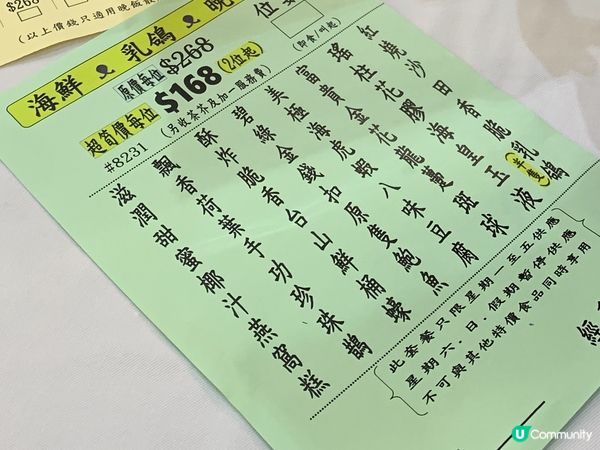 $268
(以上價錢只適用晚飯
海鮮 乳鴿 晚
位
原價每位 $268
超筍價每位 $168 (2位起)
(另收茶芥及加一服務費)
(即食/叫起)
#8231
紅燒沙田香脆乳鴿
半隻
瑤柱花膠海皇玉液
富貴花龍躉斑球
美極海虎蝦八味豆腐
碧綠金錢扣原隻鮑魚
酥炸脆香台山鮮桶蠔
飄香荷葉手功珍珠鵲
滋潤甜蜜椰汁燕窩糕
此套餐只限星期一至五供應
星期六、日、假期暫停供應
不可與其他特價食品同時享用
經
U Community